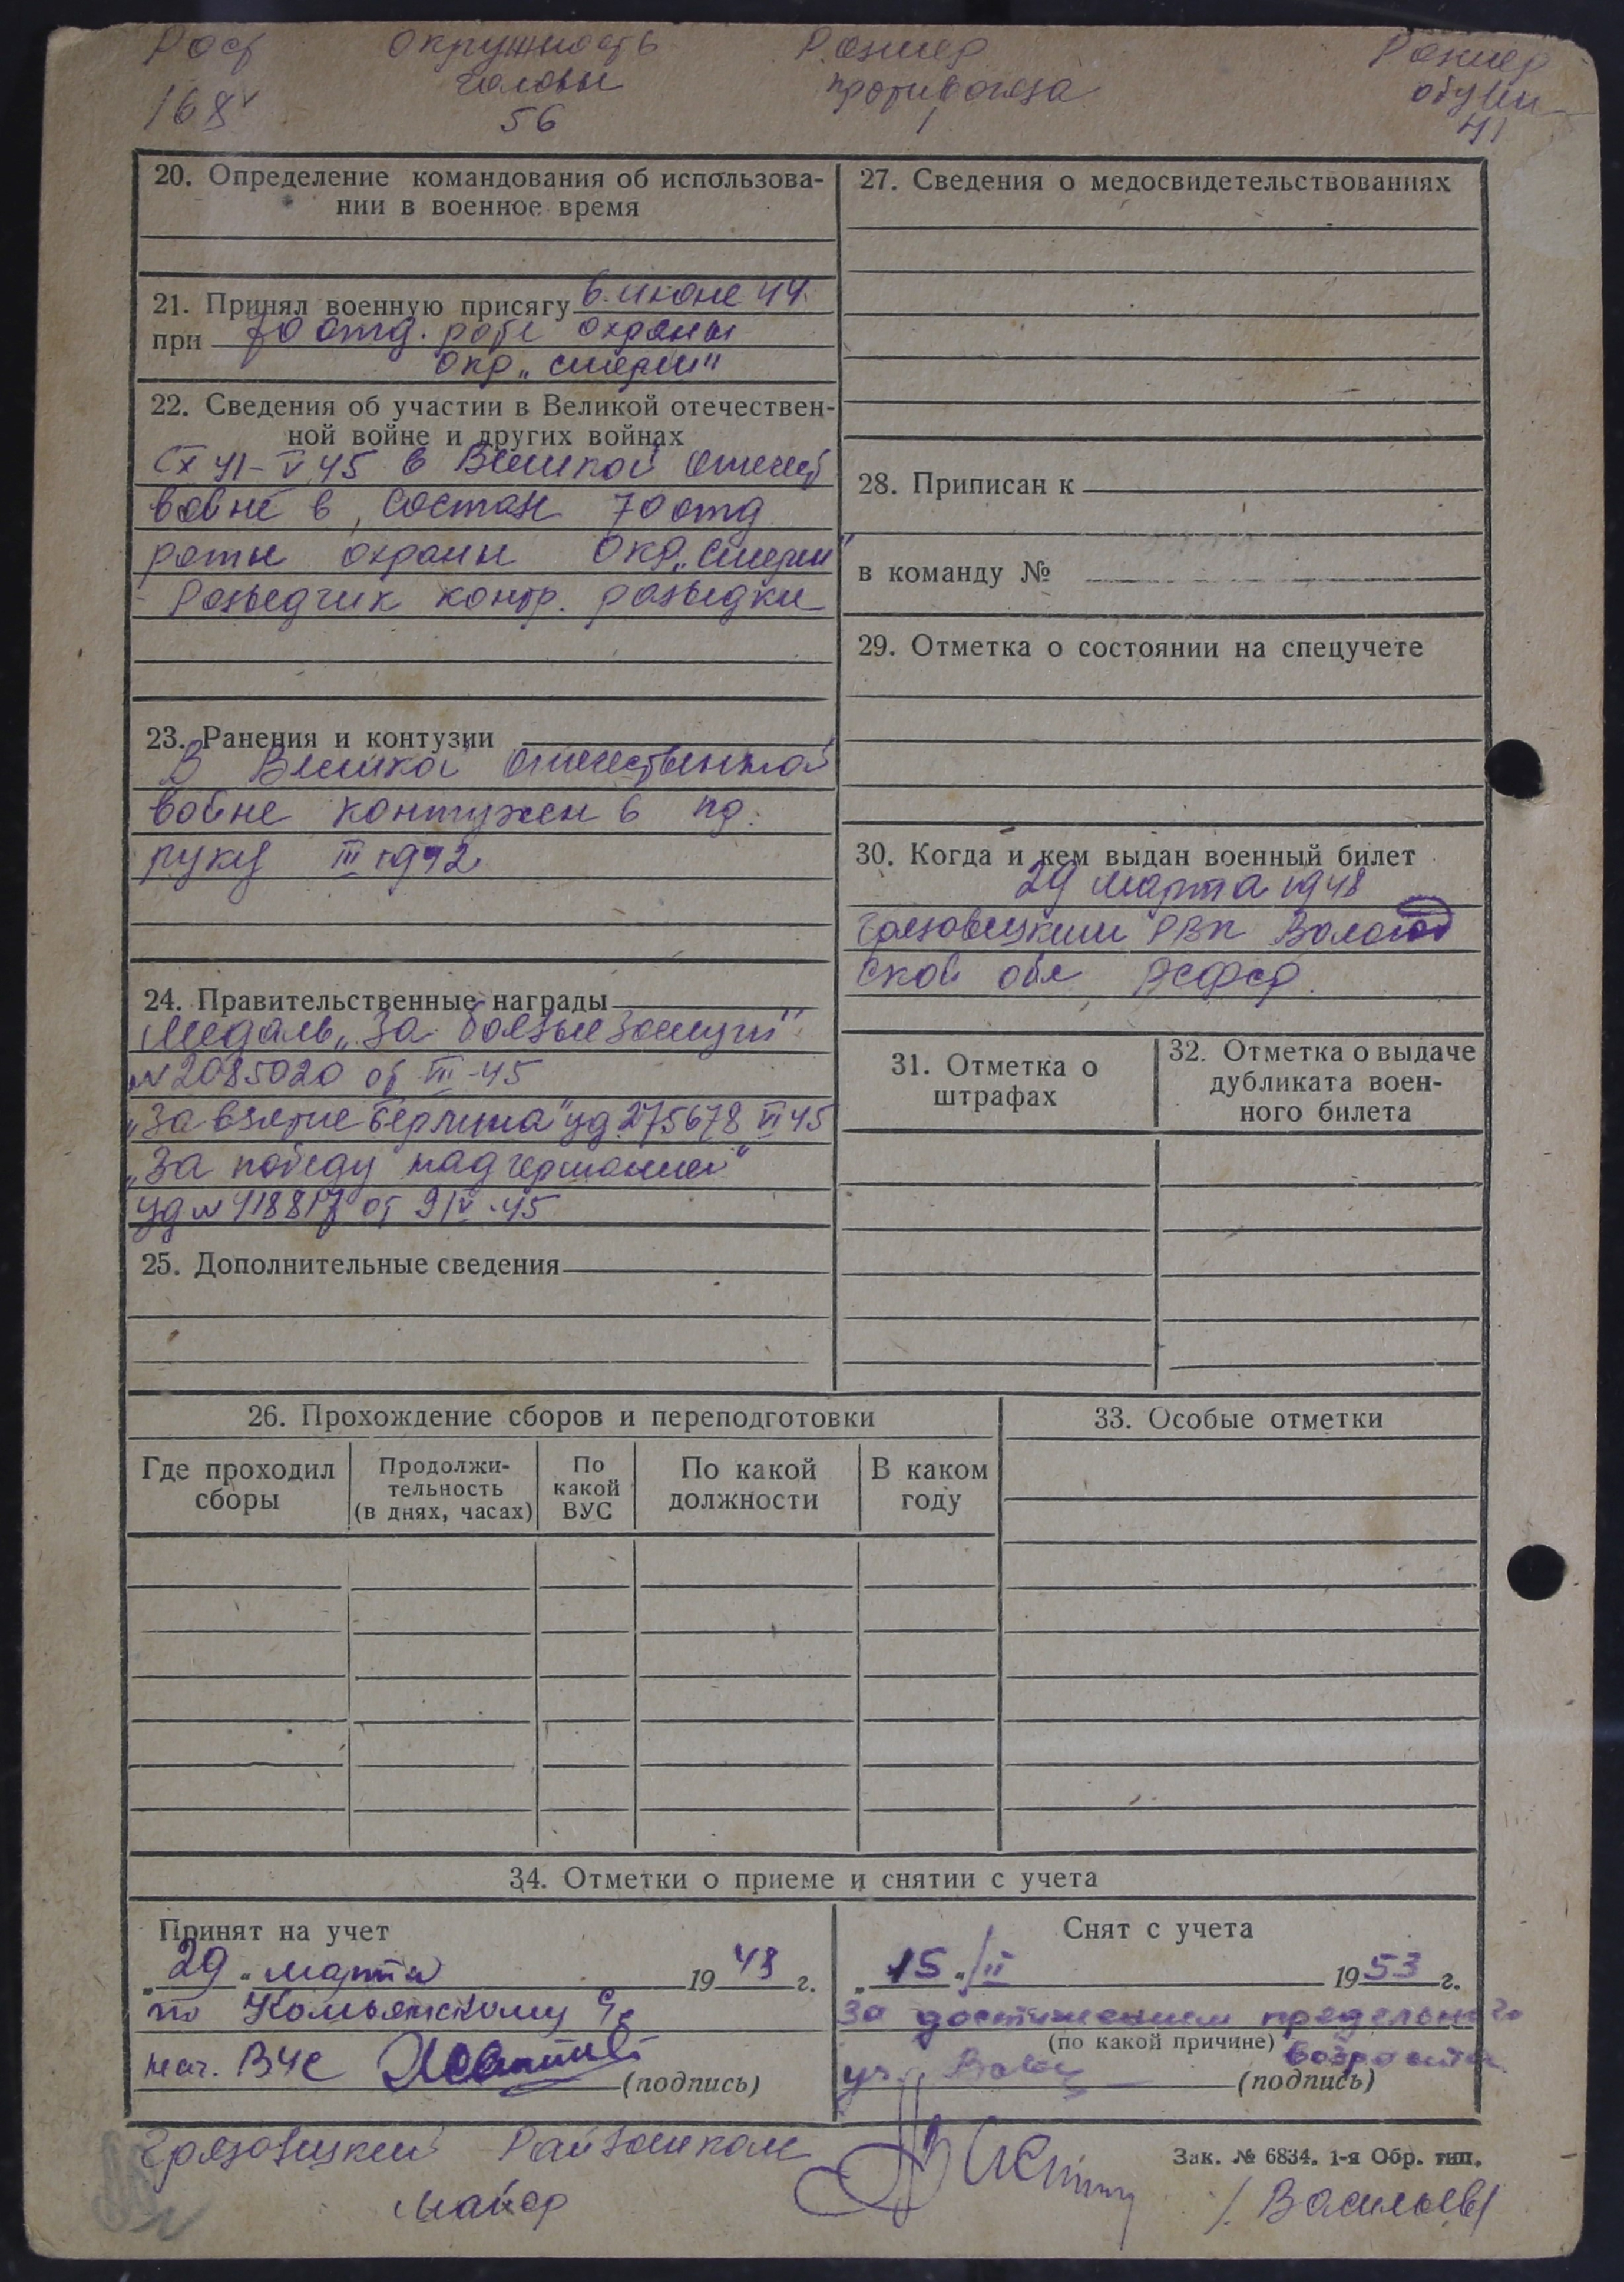 Рост Окружность Размер Размер
головы противогаза обуви
168 56 1 41
20. Определение командования об использова-
нии в военное время
21. Принял военную присягу 6 июне 44.
при 70 отд. роте охраны
окр „Смерш"
22. Сведения об участии в Великой отечествен-
ной войне и других войнах
с X 41 - V 45 в Великой отечеств
войне в состав 70 отд
роты охраны окр „Смерш"
- Разведчик контр. разведки
23. Ранения и контузии
В Великой отечественной
войне контужен в
руку III 1942
24. Правительственные награды
Медаль „За боевые заслуги"
№ 2085020 от III-45
„За взятие Берлина" уд 275678 VI 45
„За победу над германией"
уд № 418817 от 9 IV-45
25. Дополнительные сведения
27. Сведения о медосвидетельствованиях
28. Приписан к
в команду №
29. Отметка о состоянии на спецучете
30. Когда и кем выдан военный билет
29 марта 1948
Грязовецким РВК Вологод
ской обл РСФСР.
31. Отметка о
штрафах
32. Отметка о выдаче
дубликата воен-
ного билета
26. Прохождение сборов и переподготовки
Где проходил
сборы
Продолжи-
тельность
(в днях, часах)
По
какой
ВУС
По какой
должности
В каком
году
33. Особые отметки
34. Отметки о приеме и снятии с учета
Принят на учет
„29" марта 1948 г.
по Комьянскому
нач. ВУС
(подпись)
Снят с учета
„15" / II 1953 г.
за достижением предельного
(по какой причине) возраста
(подпись)
Грязовецкий Райвоенком
майор
/ Васильев /
Зак. № 6834. 1-я Обр. тип.